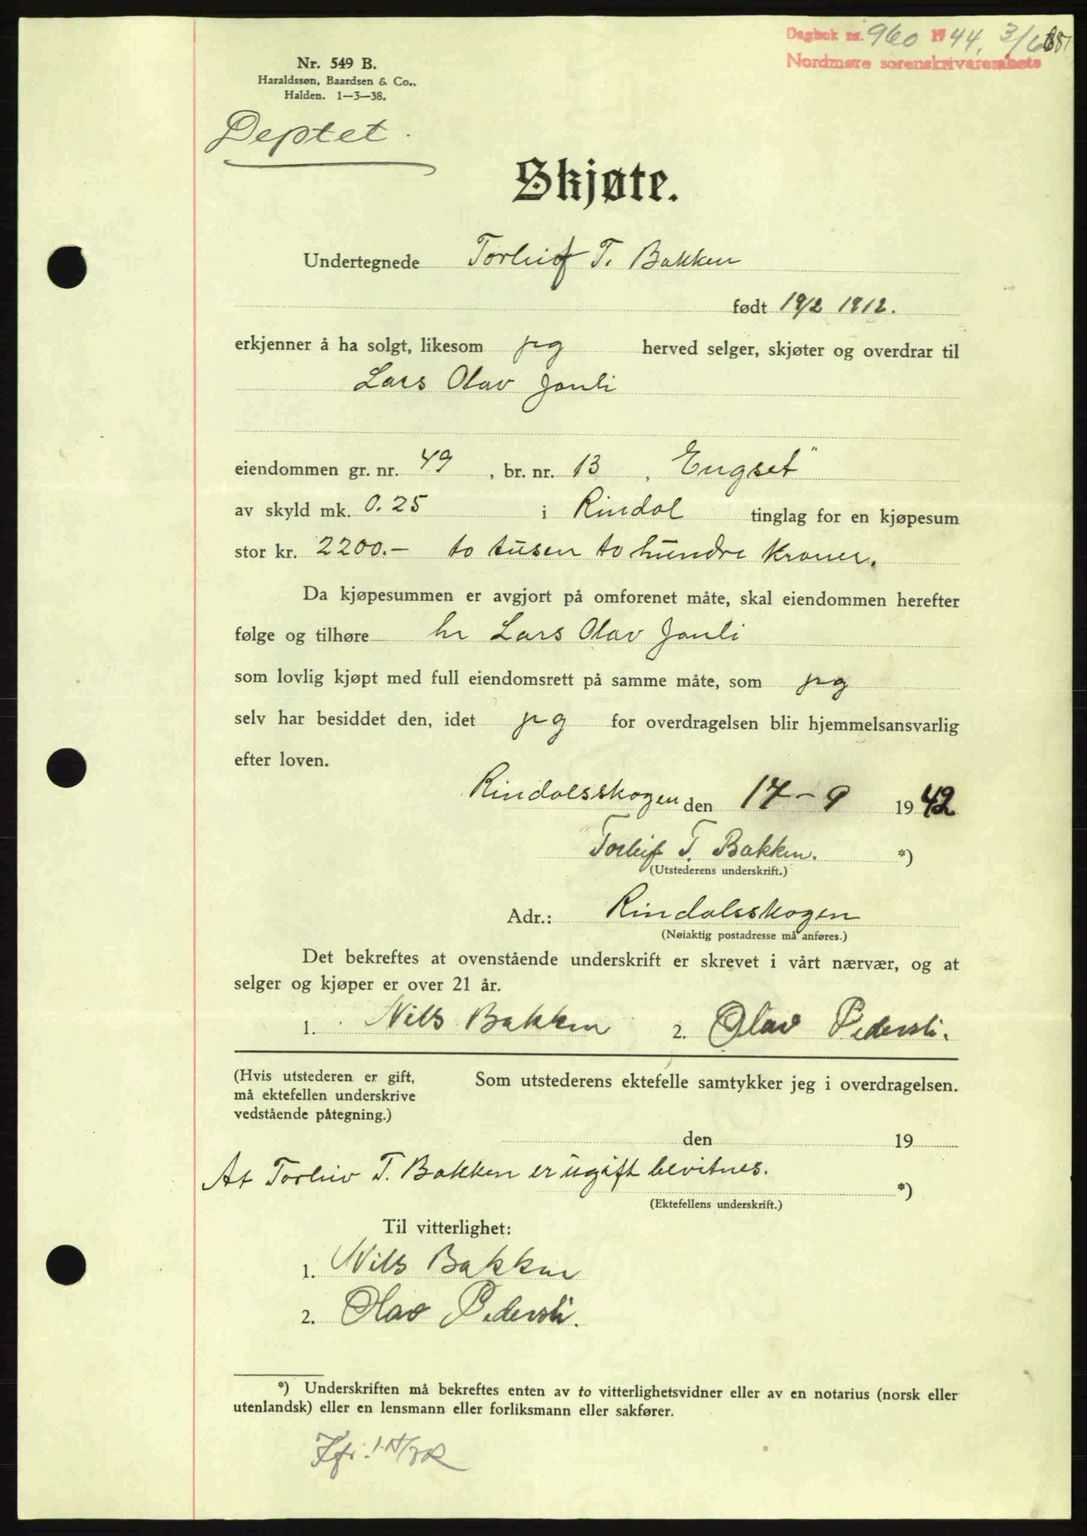 Dagbok nr. 960 1944, 3/6
Nordmøre sorenskriverembete
Nr. 549 B.
Haraldssøn, Baardsen & Co.,
Halden. 1—3—38.
Deptet.
Skjøte.
Undertegnede Torleif T. Bakken
født 19/2 1912.
erkjenner å ha solgt, likesom jeg herved selger, skjøter og overdrar til
Lars Olav Jonli
eiendommen gr. nr. 49, br. nr. 13, „Engset"
av skyld mk. 0.25 i Rindal tinglag for en kjøpesum
stor kr. 2200.— to tusen to hundre kroner.
Da kjøpesummen er avgjort på omforenet måte, skal eiendommen herefter
følge og tilhøre hr Lars Olav Jonli
som lovlig kjøpt med full eiendomsrett på samme måte, som jeg
selv har besiddet den, idet jeg for overdragelsen blir hjemmelsansvarlig
efter loven.
Rindalsskogen den 17-9 1942
Torleif T. Bakken. *)
(Utstederens underskrift.)
Adr.: Rindalsskogen
(Nøiaktig postadresse må anføres.)
Det bekreftes at ovenstående underskrift er skrevet i vårt nærvær, og at
selger og kjøper er over 21 år.
1. Nils Bakken 2. Olav Pedersli.
(Hvis utstederen er gift,
må ektefellen underskrive
vedstående påtegning.)
Som utstederens ektefelle samtykker jeg i overdragelsen.
den 19
At Torleiv T. Bakken er ugift bevitnes.
*)
(Ektefellens underskrift.)
Til vitterlighet:
1. Nils Bakken
2. Olav Pedersli.
*) Underskriften må bekreftes enten av to vitterlighetsvidner eller av en notarius (norsk eller
utenlandsk) eller en lensmann eller forliksmann eller sakfører.